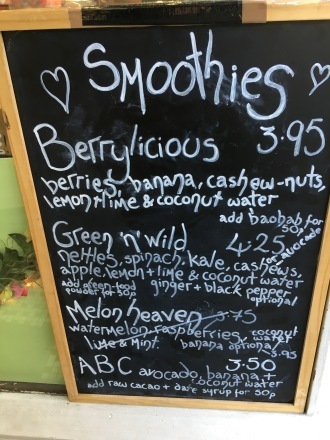 Smoothies
Berrylicious 3.95
berries, banana, cashew-nuts,
lemon+lime & coconut water
add baobab for
50p
Green 'n' wild 4.25
nettles, spinach, kale, cashews, or avocado
apple, lemon + lime & coconut water
add green-food ginger + black pepper
powder for 50p optional
Melon heaven 3.75
watermelon, raspberries, coconut
water
lime & Mint. banana optional
3.95
ABC 3.50
avocado, banana +
coconut water
add raw cacao + date syrup for 50p